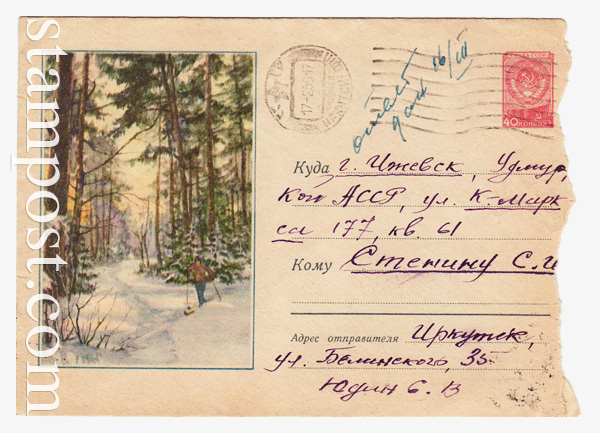 16/III
40 КОПЕЕК
Куда г. Ижевск, Удмур,
кой АССР, ул. К-Марк
са 177, кв. 61
Кому Степину С.И
Адрес отправителя Иркутск,
ул. Белинского, 35
Юдин С. В
stampost.com